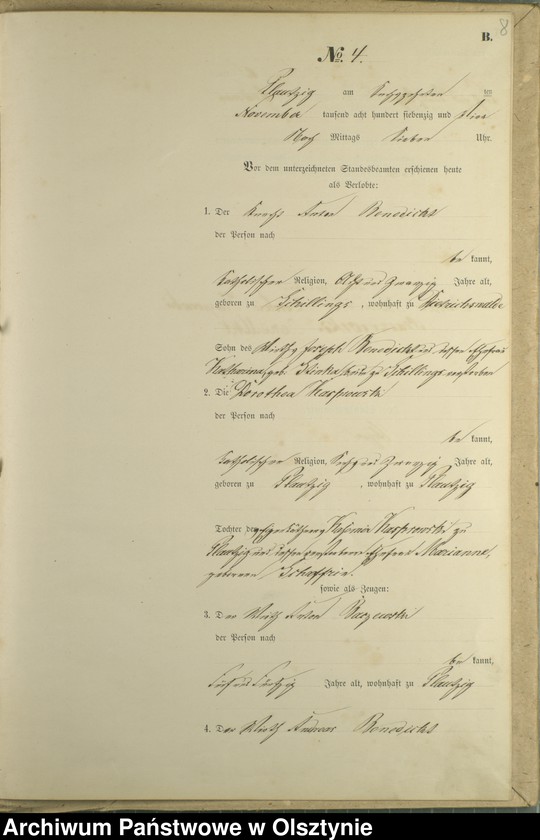 8
B.
No. 4.
Plautzig am Sechszehnten im
November tausend acht hundert siebenzig und vier
Nach Mittags Sieben Uhr.
Vor dem unterzeichneten Standesbeamten erschienen heute
als Verlobte:
1. Der Knecht Anton Benedickt
der Person nach
be kannt,
katholischer Religion, Acht und Zwanzig Jahre alt,
geboren zu Schillings, wohnhaft zu
Sohn des Joseph Benedickt und dessen Ehefrau
Katharina geb. zu Schillings
2. Die Dorothea Kasprowski
der Person nach
be kannt,
katholischer Religion, Sechs und Zwanzig Jahre alt,
geboren zu Plautzig, wohnhaft zu Plautzig
Tochter des Kasprowski zu
Plautzig und dessen Ehefrau Marianne,
geborene
sowie als Zeugen:
3. Der Wirth Anton
der Person nach
be kannt,
Jahre alt, wohnhaft zu Plautzig
4. Der Wirth Andreas Benedickt
Archiwum Państwowe w Olsztynie